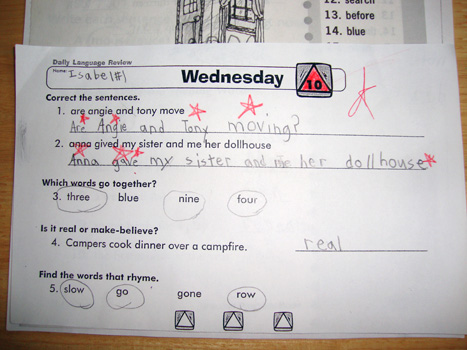 12. search
13. before
14. blue
Daily Language Review
Name: Isabel #1
Wednesday
10
Correct the sentences.
1. are angie and tony move
Are Angie and Tony moving?
2. anna gived my sister and me her dollhouse
Anna gave my sister and me her dollhouse
Which words go together?
3. three blue nine four
Is it real or make-believe?
4. Campers cook dinner over a campfire. real
Find the words that rhyme.
5. slow go gone row